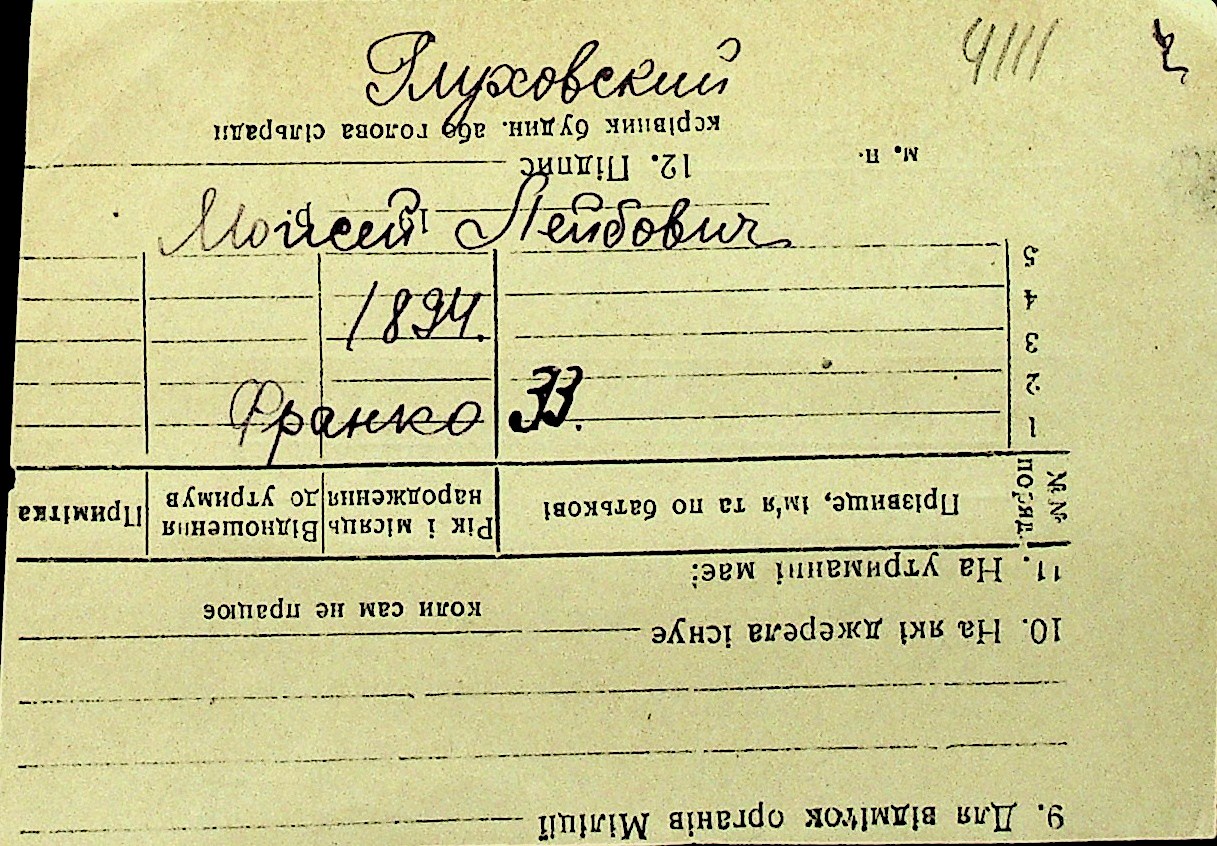 Глуховский
Мойсей Лейбович
1894.
Франко 33.
9. Для відміток органів Міліції
10. На які джерела існує
коли сам не працює
11. На утриманні має:
№№ поряд. Прізвище, ім'я та по батькові Рік і місяць народження Відношення до утримув Примітка
1
2
3
4
5
19
12. Підпис
м. п.
керівник будин. або голова сільради